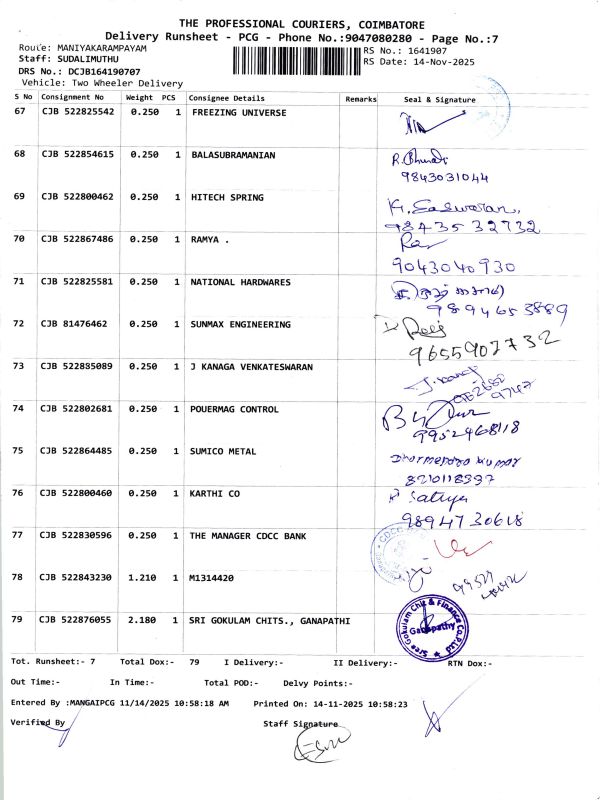 THE PROFESSIONAL COURIERS, COIMBATORE
Delivery Runsheet - PCG - Phone No.:9047080280 - Page No.:7
Route: MANIYAKARAMPAYAM RS No.: 1641907
Staff: SUDALIMUTHU RS Date: 14-Nov-2025
DRS No.: DCJB164190707
Vehicle: Two Wheeler Delivery
S No Consignment No Weight PCS Consignee Details Remarks Seal & Signature
67 CJB 522825542 0.250 1 FREEZING UNIVERSE
68 CJB 522854615 0.250 1 BALASUBRAMANIAN
9843031044
69 CJB 522800462 0.250 1 HITECH SPRING K. Easwaran,
98435 32732
70 CJB 522867486 0.250 1 RAMYA .
9043040930
71 CJB 522825581 0.250 1 NATIONAL HARDWARES
9894653889
72 CJB 81476462 0.250 1 SUNMAX ENGINEERING
9655902732
73 CJB 522835089 0.250 1 J KANAGA VENKATESWARAN
74 CJB 522802681 0.250 1 POUERMAG CONTROL
9952468118
75 CJB 522864485 0.250 1 SUMICO METAL Dharmendra Kumar
8210118397
76 CJB 522800460 0.250 1 KARTHI CO P Sathya
9894730618
77 CJB 522830596 0.250 1 THE MANAGER CDCC BANK
78 CJB 522843230 1.210 1 M1314420
79 CJB 522876055 2.180 1 SRI GOKULAM CHITS., GANAPATHI
Sree Gokulam Chit & Finance Co.P.Ltd
Ganapathy
Tot. Runsheet:- 7 Total Dox:- 79 I Delivery:- II Delivery:- RTN Dox:-
Out Time:- In Time:- Total POD:- Delvy Points:-
Entered By :MANGAIPCG 11/14/2025 10:58:18 AM Printed On: 14-11-2025 10:58:23
Verified By Staff Signature